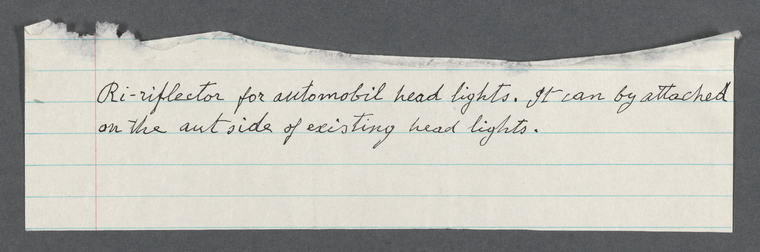 Ri-riflector for automobil head lights. It can by attached
on the aut side of existing head lights.